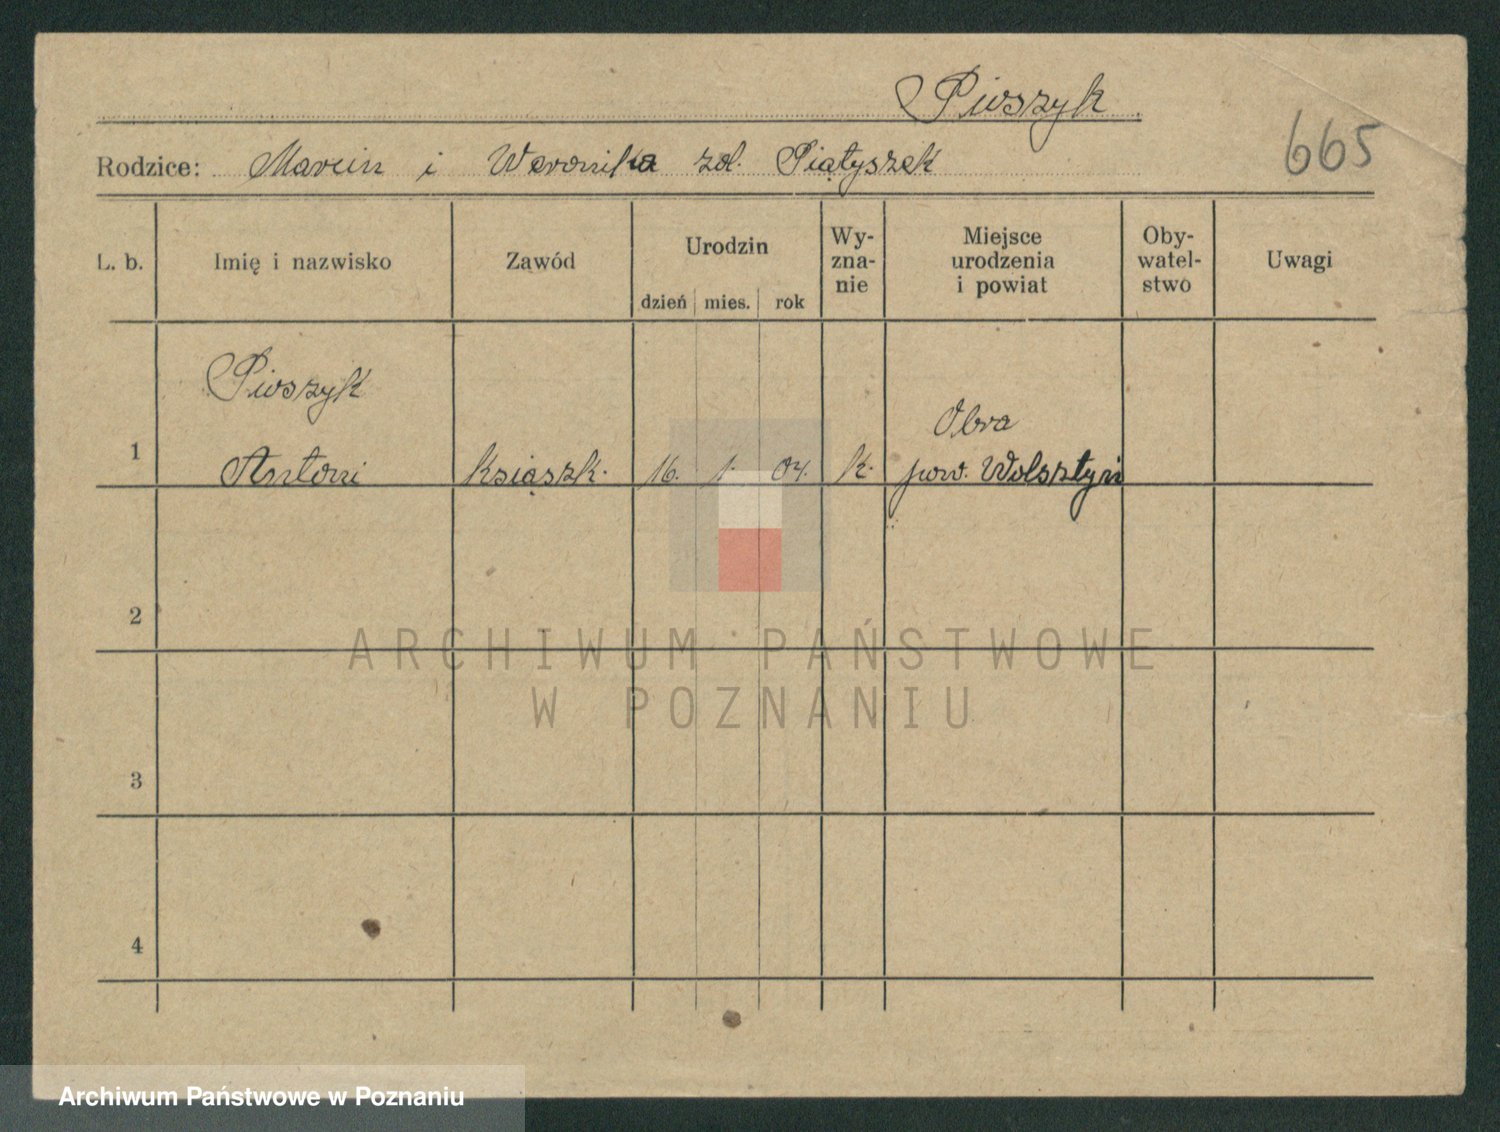 Piwszyk
665
Rodzice: Marcin i Weronika zd. Piątyszek
L. b. Imię i nazwisko Zawód Urodzin dzień mies. rok Wy-zna-nie Miejsce urodzenia i powiat Oby-watel-stwo Uwagi
Piwszyk
Obra
1 Antoni książk. 16. 1. 04. k. pow. Wolsztyn
2
ARCHIWUM PAŃSTWOWE
W POZNANIU
3
4
Archiwum Państwowe w Poznaniu